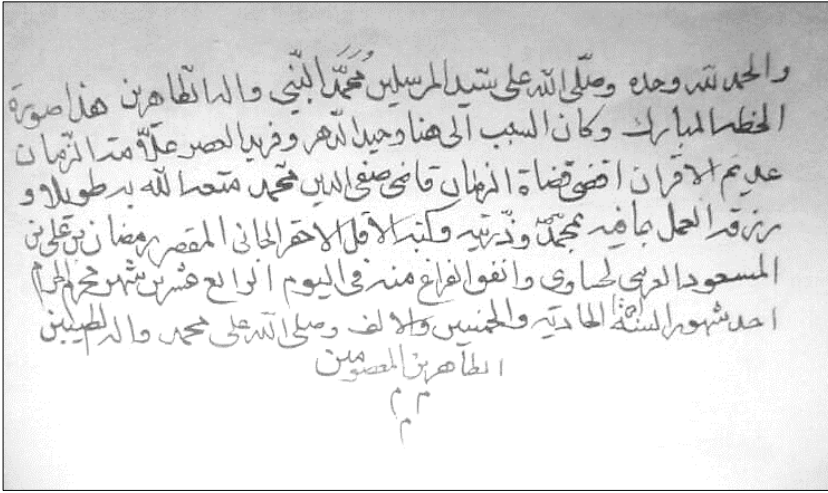 والحمد لله وحده وصلّى الله على سيّد المرسلين محمّد النّبي واله الطّاهرين هذا صورة
الخطه المبارك وكان السبب الى هنا وحيد الدّهر وفريد العصر علّامة الزّمان
عديم الاقران اقضى قضاة الزمان قاضى صفى الدين محمد متعه الله به طويلا و
رزقه العمل بما فيه بمحمّد وذرّيته وكتبه الاقل الاحقر الجانى المقصر رمضان بن على بن
المسعود العربى واتفق الفراغ منه فى اليوم الرابع عشر من شهر محرم الحرام
احد شهور السنة الحادية والخمسين والالف وصلى الله على محمد واله الطيبين
الطاهرين المعصومين
م م
م